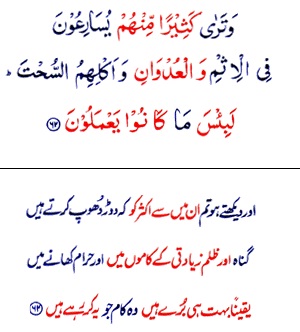 وَتَرٰى كَثِيْرًا مِّنْهُمْ يُسَارِعُوْنَ
فِى الْاِثْمِ وَالْعُدْوَانِ وَاَكْلِهِمُ السُّحْتَ ؕ
لَبِئْسَ مَا كَانُوْا يَعْمَلُوْنَ ﴿۶۲﴾
اور دیکھتے ہو تم ان میں سے اکثر کو کہ دوڑ دُھوپ کرتے ہیں
گناہ اور ظلم زیادتی کے کاموں میں اور حرام کھانے میں
یقیناً بہت ہی بُرے ہیں وہ کام جو یہ کر رہے ہیں ﴿۶۲﴾